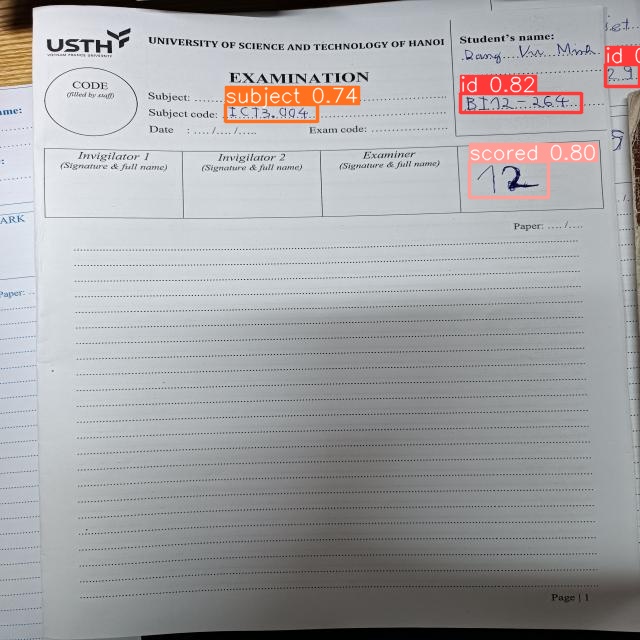 USTH
VIETNAM FRANCE UNIVERSITY
UNIVERSITY OF SCIENCE AND TECHNOLOGY OF HANOI
EXAMINATION
CODE
(filled by staff)
Subject: ........
subject 0.74
Subject code: ICT3.004
Date : ..../..../.....
Exam code: ..................
Student's name:
Dang Vu Minh
id 0.82
BI12-264
id 0
29
Invigilator 1
(Signature & full name)
Invigilator 2
(Signature & full name)
Examiner
(Signature & full name)
scored 0.80
12
Paper: ..../....
Page | 1
ame:
ARK
Paper: ..